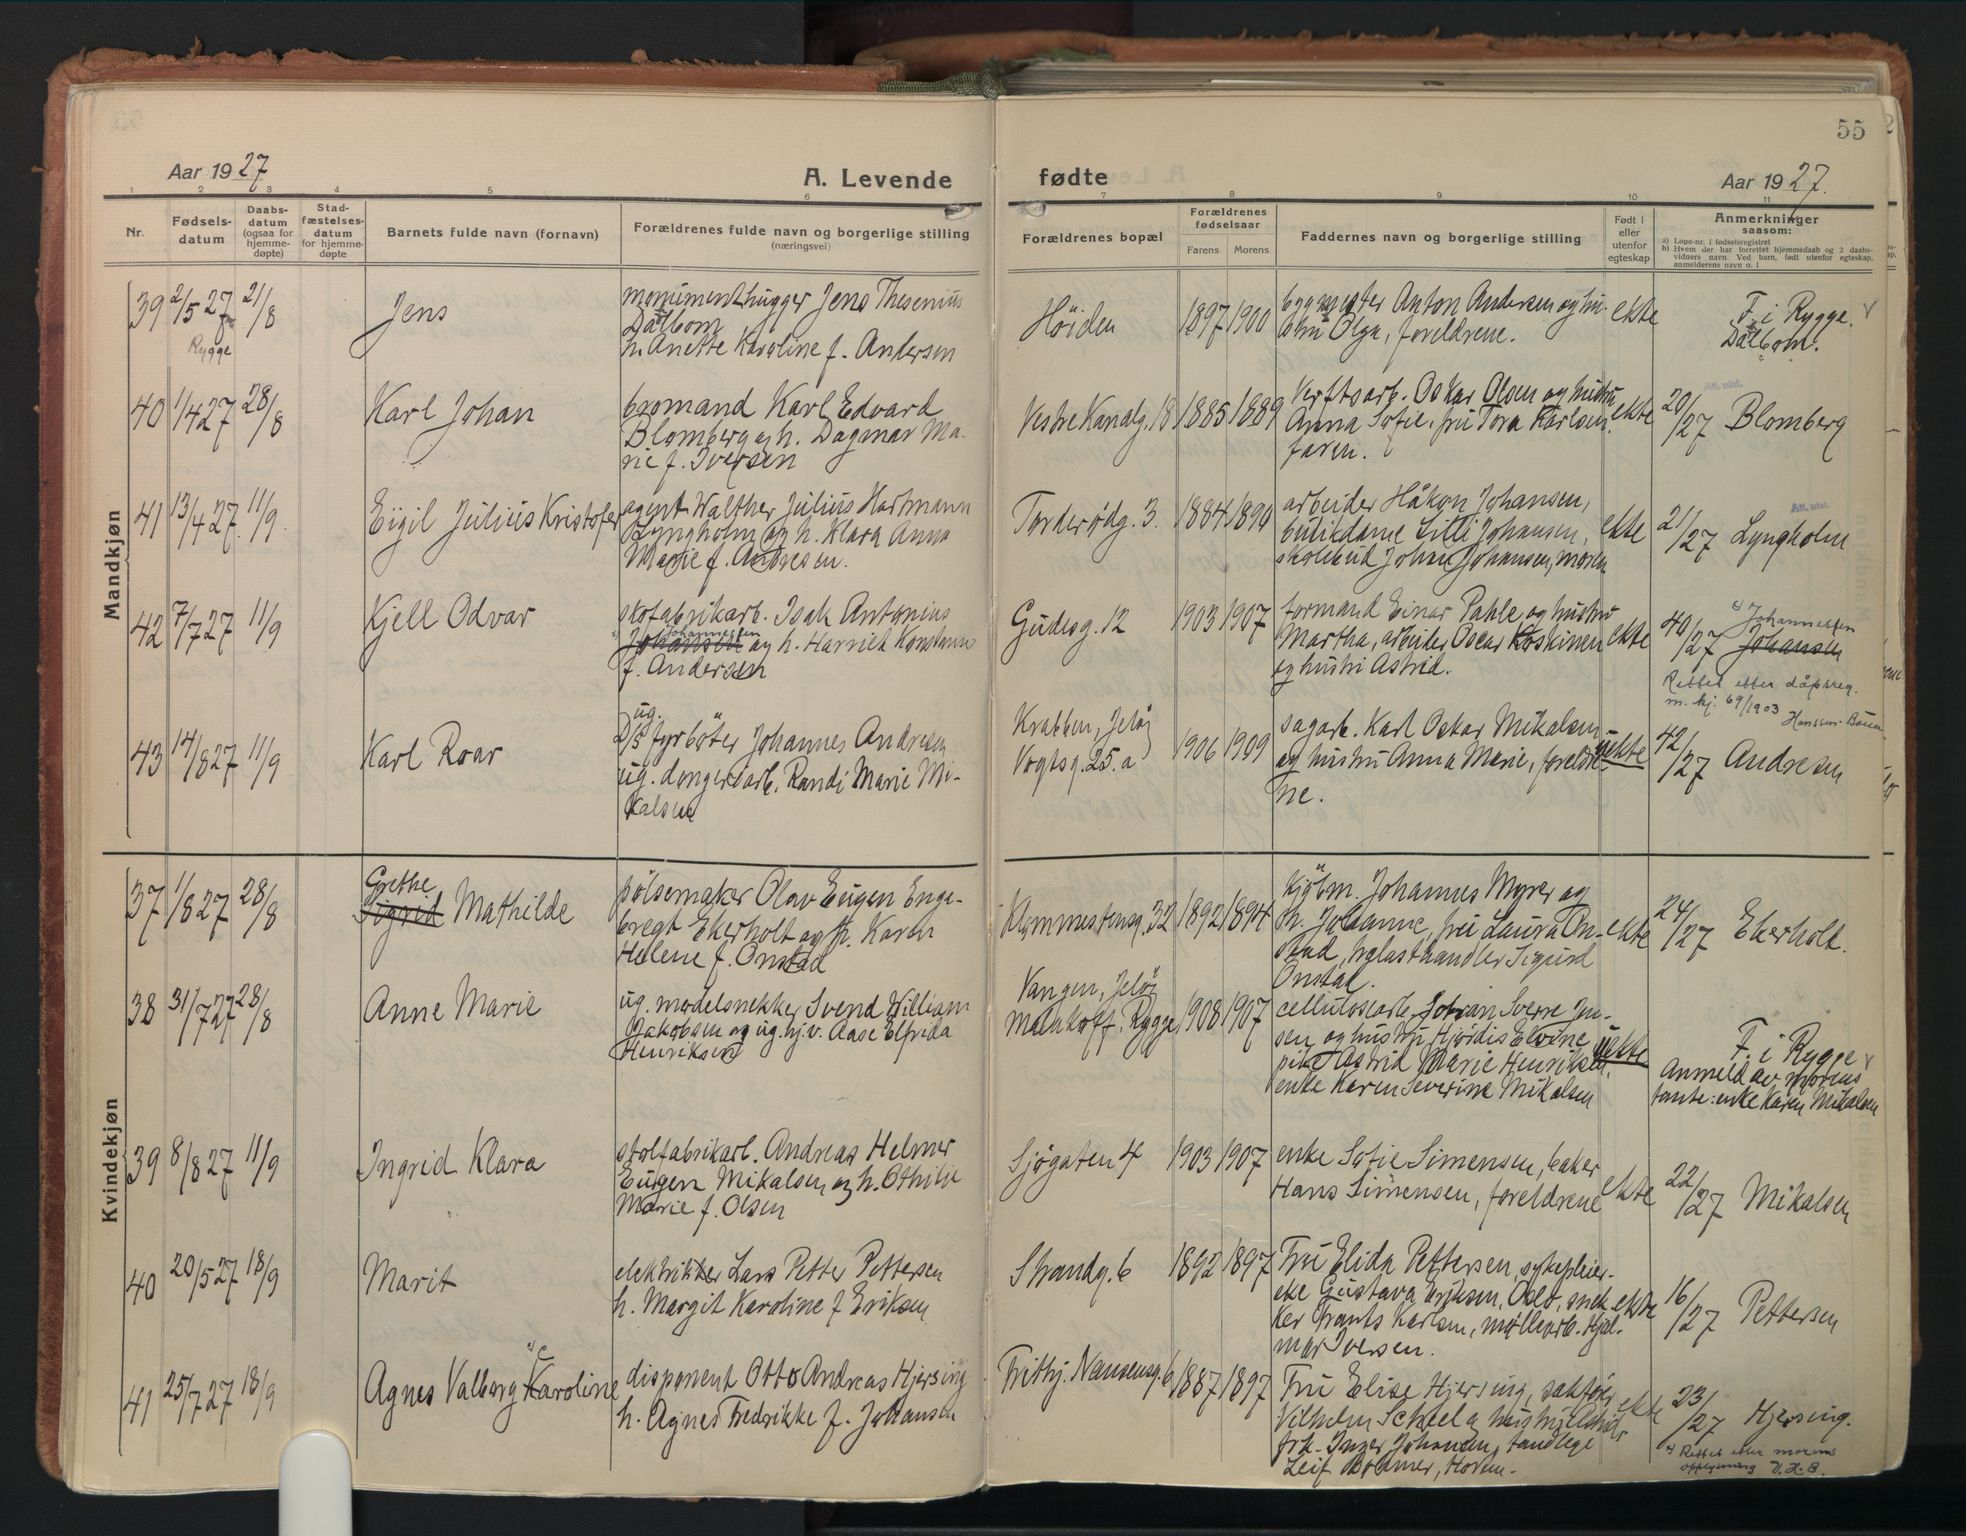 55
Aar 1927
A. Levende
fødte
Aar 1927.
1 2 3 4 5 6 7 8 9 10 11
Nr.
Fødsels-
datum
Daabs-
datum
(ogsaa for
hjemme-
døpte)
Stad-
fæstelses-
datum
for hjemme-
døpte
Barnets fulde navn (fornavn)
Forældrenes fulde navn og borgerlige stilling
(næringsvei)
Forældrenes bopæl
Forældrenes
fødselsaar
Farens Morens
Faddernes navn og borgerlige stilling
Født i
eller
utenfor
egteskap
Anmerkninger
saasom:
a) Løpe-nr. i fødselsregistret
b) Hvem der har forrettet hjemmedaab og 2 daabs-
vidners navn. Ved barn, født utenfor egteskap,
anmelderens navn o. l
Mandkjøn
39 2/5 27 21/8
Rygge
Jens
monumenthugger Jens Thesenius
Dalbom
h. Anette Karoline f. Andersen
Höiden
1897 1900
byggmester Anton Andersen og hu-
stru Olga, foreldrene.
ekte
F. i Rygge.
Dalbom.
40 1/4 27 28/8
Karl Johan
bromand Karl Edvard
Blomberg og h. Dagmar Ma-
rie f. Iversen
Vestre Kanalg. 18
1885 1889
Verftsarb. Oskar Olsen og hustru
Anna Sofie, fru Tora Karlsen,
faren.
ekte
Att. utst.
20/27 Blomberg
41 13/4 27 11/9
Eigil Julius Kristofer
agent Walther Julius Hartmann
Lyngholm og h. Klara Anna
Marie f. Andresen.
Torderødg. 3.
1884 1890
arbeider Håkon Johansen,
butikdame Lilli Johansen,
skolebud Johan Johansen, moren
ekte
Att. utst.
21/27 Lyngholm
42 7/7 27 11/9
Kjell Odvar
skofabrikarb. Isak Antonius
Johannessen
Johansen og h. Harriet Konstanse
f. Andersen
Gudesg. 12
1903 1907
formand Einar Pahle og hustru
Martha, arbeider Oscar Koskinen
og hustru Astrid.
ekte
40/27 Johannessen
Johansen
Rettet etter dåpsreg.
m. kj. 69/1903
43 14/8 27 11/9
Karl Roar
ug.
D/S fyrböter Johannes Andresen
ug. dongeriarb. Randi Marie Mi-
kalsen
Krabben, Jelöy
Vogtsg. 25. a
1906 1909
sagarb. Karl Oskar Mikalsen
og hustru Anna Marie, foreldre-
ne.
uekte
42/27 Andresen
Kvindekjøn
37 1/8 27 28/8
Grethe
Sigrid Mathilde
pölsemaker Olav Eugen Enge-
bregt Ekerholt og h. Karen
Helene f. Onstad
Klommestensg. 32
1892 1894
Kjöbm. Johannes Myrer og
h. Johanne, fru Laura On-
stad, Sigurd
Onstad.
ekte
24/27 Ekerholt.
38 31/7 27 28/8
Anne Marie
ug. modelsnekker Svend William
Jakobsen og ug. hj.v. Aase Elfrida
Henriksen
Vangen, Jelöy
Malakoff, Rygge
1908 1907
cellulosearb. Johan Sverre Jen-
sen og hustru Hjördis Elvine
pike Astrid Marie Henriksen,
enke Karen Severine Mikalsen
uekte
F. i Rygge
Anmeld av morens
tante: enke Karen Mikalsen
39 8/8 27 11/9
Ingrid Klara
stolfabrikarb. Andreas Helmer
Eugen Mikalsen og h. Othilie
Marie f. Olsen
Sjögaten 4
1903 1907
enke Sofie Simensen, baker
Hans Simensen, foreldrene
ekte
22/27 Mikalsen
40 20/5 27 18/9
Marit
elektriker Lars Petter Pettersen
h. Margit Karoline f Eriksen
Strandg. 6
1892 1897
Fru Elida Pettersen, sykepleier-
ske Gustava Eriksen, Oslo, snek-
ker Frants Karlsen, møllearb. Hjal-
mar Iversen.
ekte
16/27 Pettersen
41 25/7 27 18/9
Agnes Valborg Karoline
disponent Otto Andreas Hjersing
h. Agnes Fredrikke f. Johansen
Fritjh. Nansensg. 6
1887 1897
Fru Elise Hjersing, sakfører
Vilhelm Scheel og hustru
frk. Inger Johansen, tandlege
Leif Bodmer, Horten.
ekte
23/27 Hjersing.
Rettet etter morens
opplysning